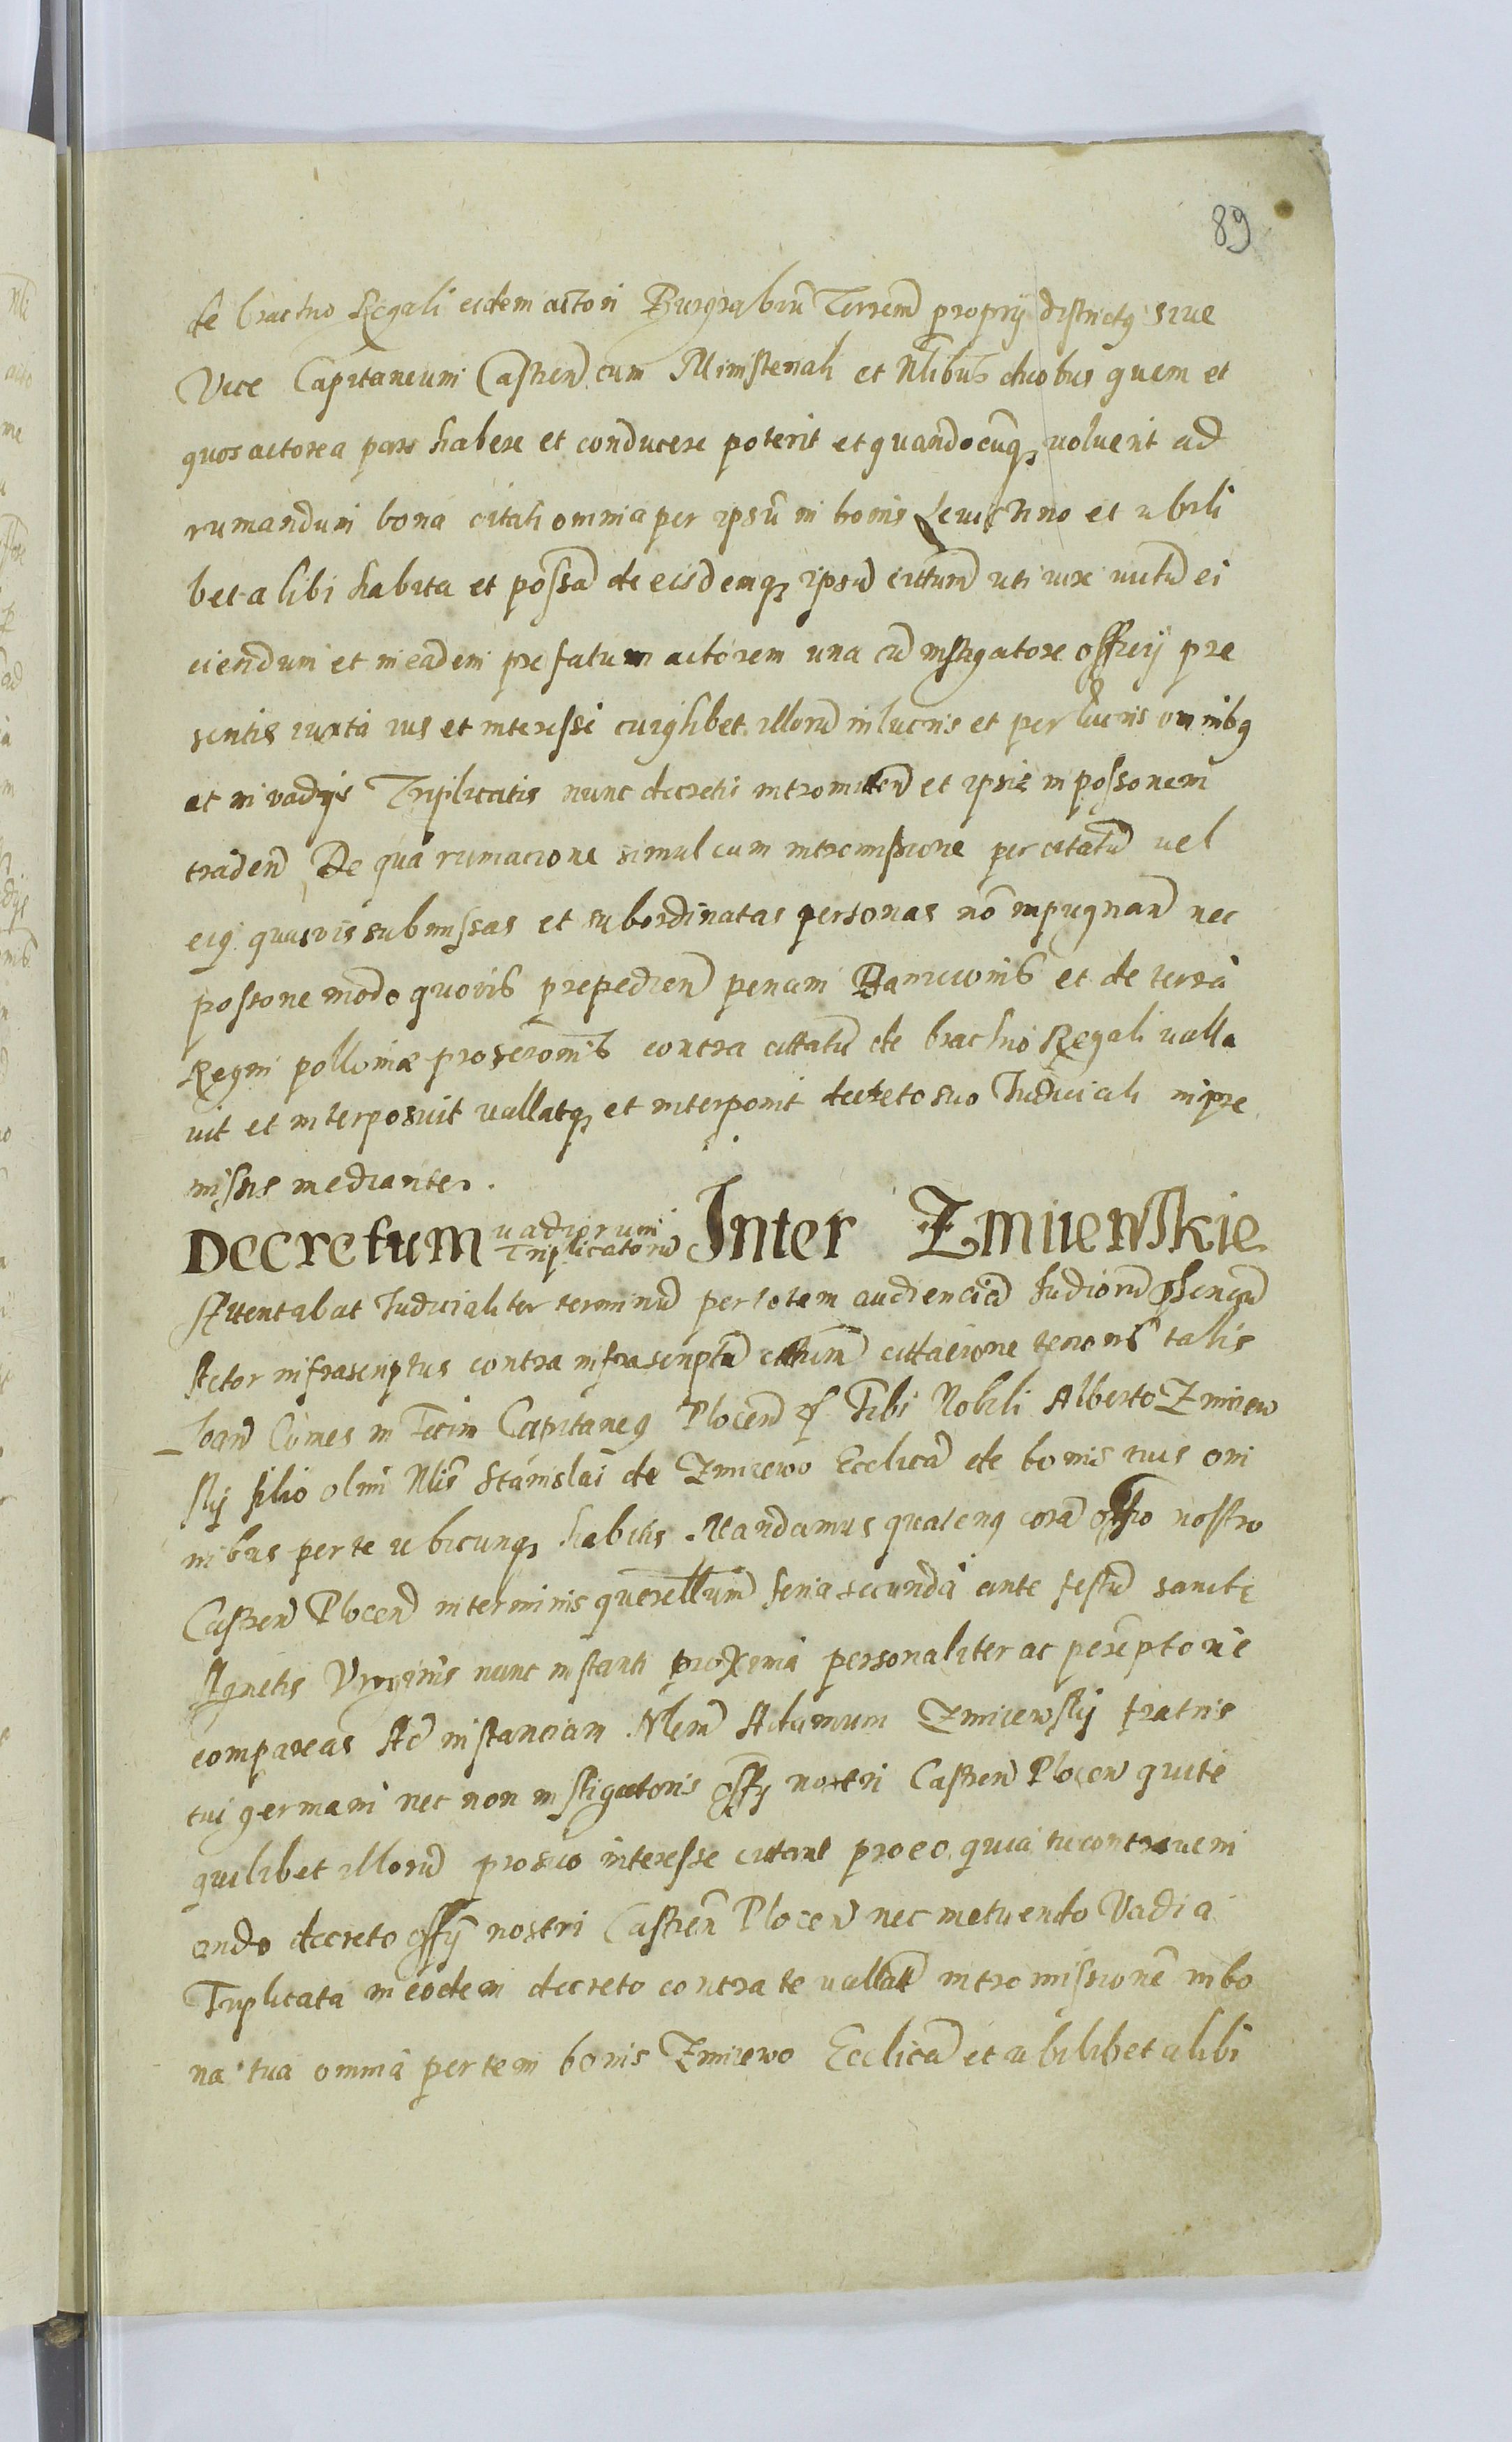 89
de brachio Regali eidem actori Burgrabiu Terren propry districtq siue
Vice Capitaneum Castren cum Ministeriali et Nlibus duobus quem et
quos actorea pars habere et conducere poterit et quandocuq uoluerit ad
rumandum bona citati omnia per ipsu in bonis Leuichno et ubili
bet alibi habita et possa de eisdemq ipsu cittatum uti iure uictu ei
ciendum et in eadem prefatum actorem una cu instigatore officy pre
sentis iuxta ius et interesse cuiqlibet illoru in lucris et perlucris omnibq
et in vadys Triplicatis nunc decretis intromitten et ipsis in possonem
traden De qua rumacione simul cum intromissione per citatu uel
eiq quasvis submissas et subordinatas personas no inpugnan nec
possone modo quovis prepedien penam Bannicionis et de terra
Regni polloniæ proscronis contra cittatu de brachio Regali valla
uit et interposuit uallatq et interponit decreto suo Iudiciali in pre
missis mediante.
Decretum uadiorum Triplicatoru Inter Zmiiewskie
Attentabat Iudicialiter terminu per totam audienciam Iudioru psenciu
Actor infrascriptus contra infrascriptu cittatum cittacione tenoris talis
Ioan Comes in Tecin Capitaneq Plocen Tibi Nobili Alberto Zmiiew
sky filio olim Nlis Stanislai de Zmiiewo Ecclica de bonis tuis om
nibus per te ubicunq habitis Mandamus quatenq cora offio nostro
Castren Plocen in terminis querellarum feria secunda ante festu sancte
Agnetis Virginis nunc instanti proxima personaliter ac peremptorie
compareas Ad instanciam Nlem Adamum Zmiiewsky fratris
tui germani nec non instigatoris offy nostri Castren Plocen qui te
quilibet illoru pro suo interesse cittant pro eo quia tu contraueni
ando decreto offy nostri Castren Plocen nec metuendo Vadia
Triplicata in eodem decreto contra te uallata intromissione in bo
na tua omnia per te in bonis Zmiiewo Ecclica et ubilibet alibi